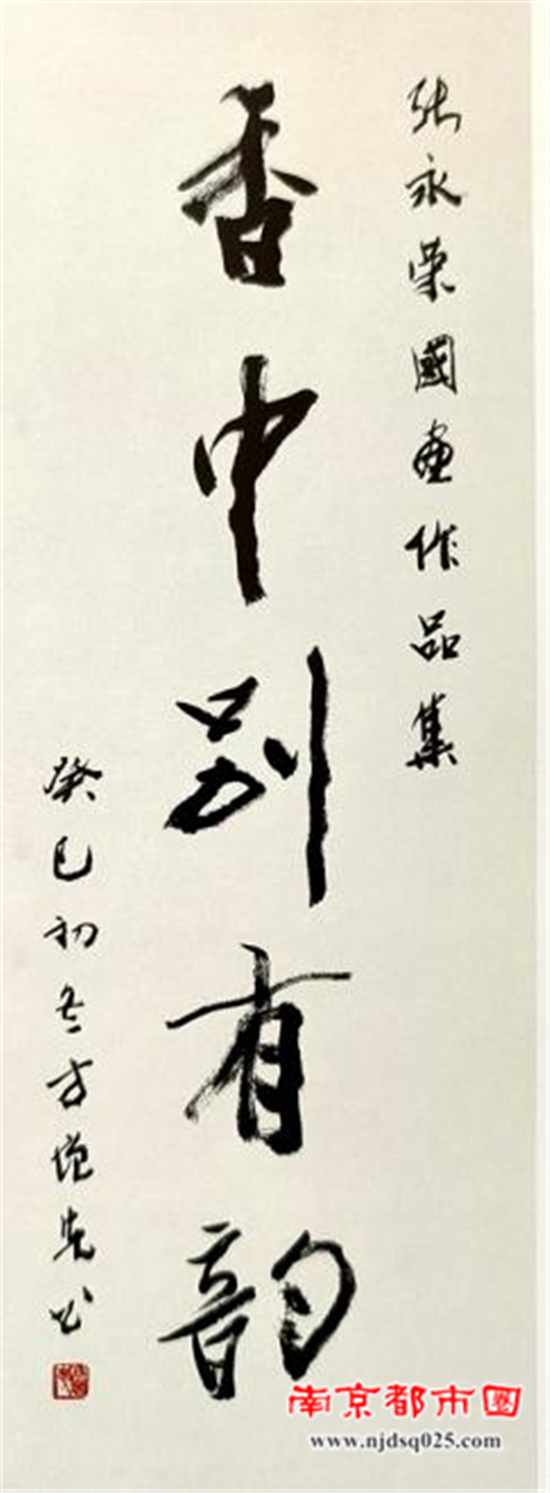 张永荣國画作品集
香中别有韵
癸巳初冬方增先书
南京都市圈
www.njdsq025.com